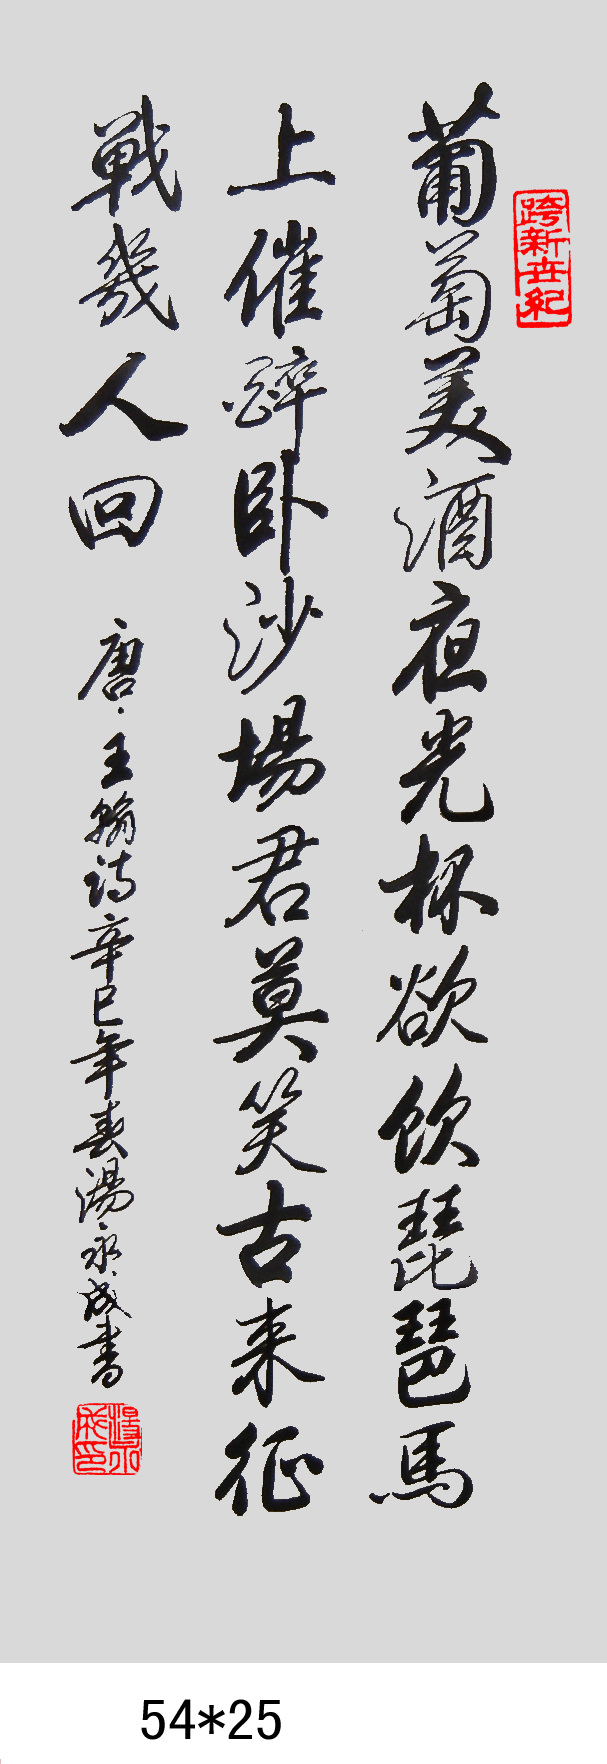 跨新世紀
葡萄美酒夜光杯欲飲琵琶馬
上催醉卧沙場君莫笑古来征
戰幾人回
唐·王翰诗辛巳年春湯永成書
湯永成印
54*25